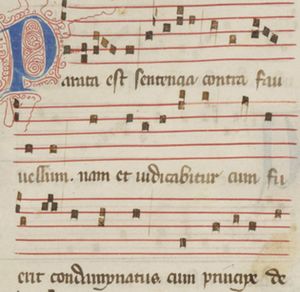 Parata est sentencia contra fau
uellum. nam et iudicabitur cum fu
erit condimpnatus. cum principe de